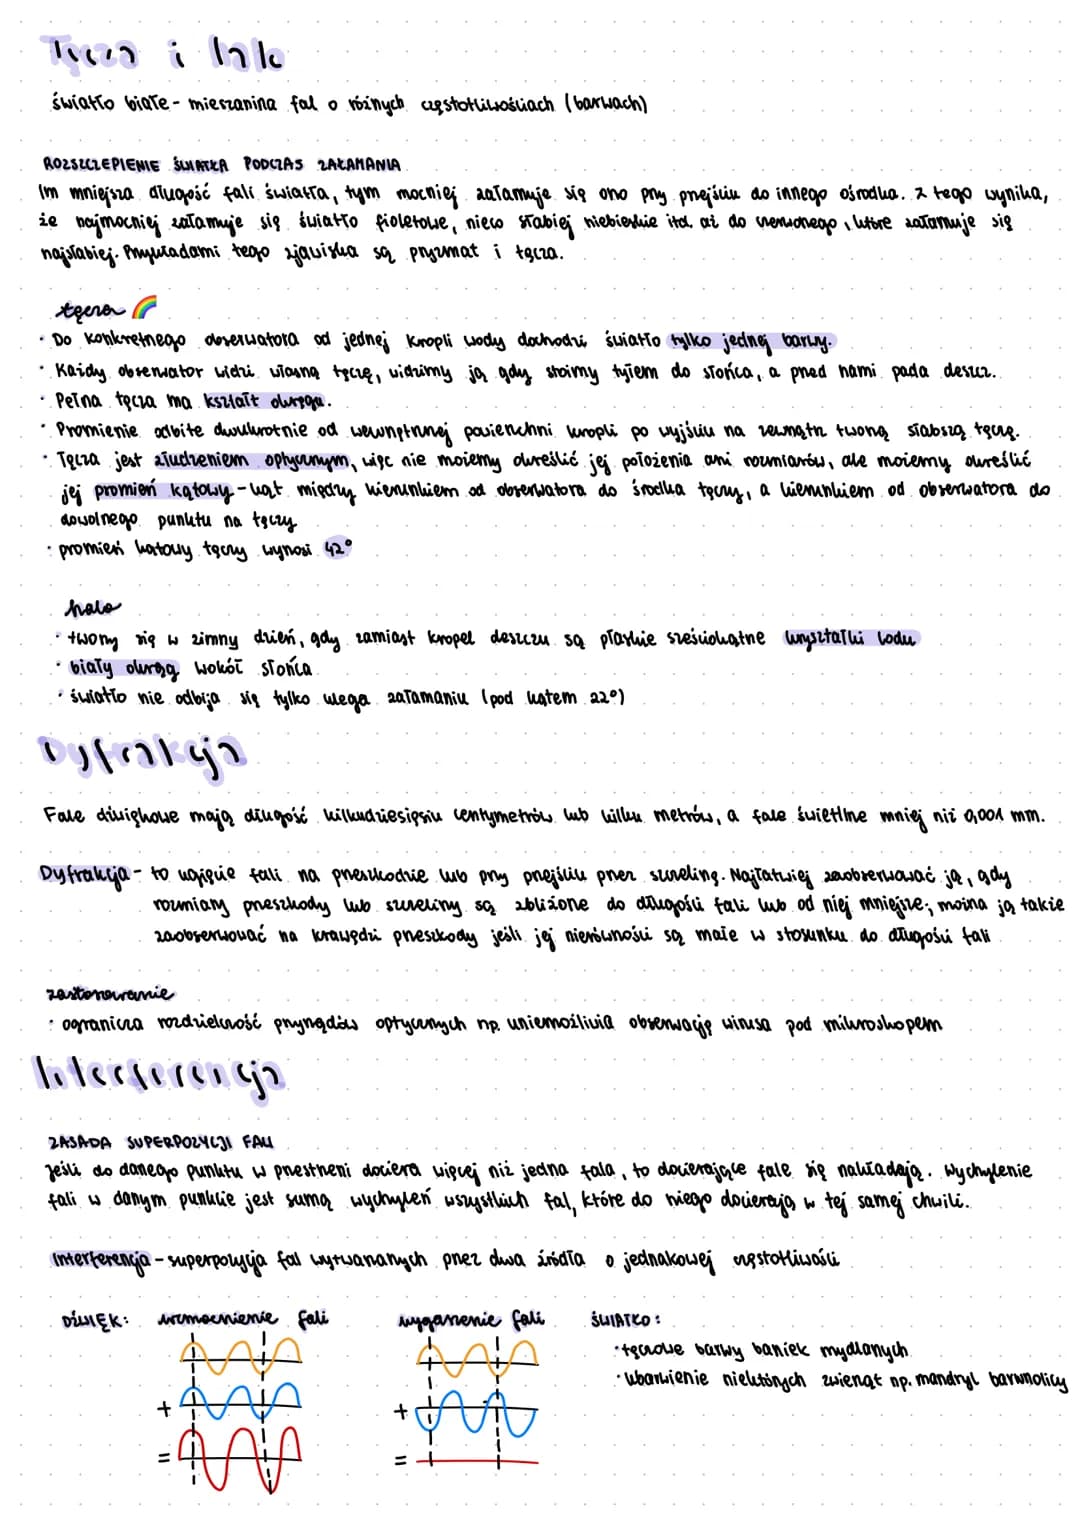 Tęcza i halo
światło białe - mieszanina fal o różnych częstotliwościach (barwach)
ROZSZCZEPIENIE ŚWIATŁA PODCZAS ZAŁAMANIA
Im mniejsza długość fali światła, tym mocniej załamuje się ono przy przejściu do innego ośrodka. Z tego wynika,
że najmocniej załamuje się światło fioletowe, nieco słabiej niebieskie itd. aż do czerwonego, które załamuje się
najsłabiej. Przykładami tego zjawiska są pryzmat i tęcza.
tęcza 🌈
• Do konkretnego obserwatora od jednej kropli wody dochodzi światło tylko jednej barwy.
• Każdy obserwator widzi własną tęczę, widzimy ją gdy stoimy tyłem do słońca, a przed nami pada deszcz.
• Pełna tęcza ma kształt okręgu.
• Promienie odbite dwukrotnie od wewnętrznej powierzchni kropli po wyjściu na zewnątrz tworzą słabszą tęczę.
• Tęcza jest złudzeniem optycznym, więc nie możemy określić jej położenia ani rozmiarów, ale możemy określić
jej promień kątowy - kąt między kierunkiem od obserwatora do środka tęczy, a kierunkiem od obserwatora do
dowolnego punktu na tęczy
• promień kątowy tęczy wynosi 42°
halo
• tworzy się w zimny dzień, gdy zamiast kropel deszczu są płaskie sześciokątne kryształki lodu
• biały okrąg wokół słońca
• światło nie odbija się tylko ulega załamaniu (pod kątem 22°)
Dyfrakcja
Fale dźwiękowe mają długość kilkudziesięsiu centymetrów lub kilku metrów, a fale świetlne mniej niż 0,001 mm.
Dyfrakcja - to ugięcie fali na przeszkodzie lub przy przejściu przez szczelinę. Najłatwiej zaobserwować ją, gdy
rozmiary przeszkody lub szczeliny są zbliżone do długości fali lub od niej mniejsze; można ją także
zaobserwować na krawędzi przeszkody jeśli jej nierówności są małe w stosunku do długości fali
zastosowanie
• ogranicza rozdzielczość przyrządów optycznych np. uniemożliwia obserwację wirusa pod mikroskopem
Interferencja
ZASADA SUPERPOZYCJI FALI
Jeśli do danego punktu w przestrzeni dociera więcej niż jedna fala, to docierające fale się nakładają. Wychylenie
fali w danym punkcie jest sumą wychyleń wszystkich fal, które do niego docierają w tej samej chwili.
Interferencja - superpozycja fal wytwarzanych przez dwa źródła o jednakowej częstotliwości
DŹWIĘK: wzmocnienie fali wygaszenie fali ŚWIATŁO:
• tęczowe barwy baniek mydlanych
• ubarwienie niektórych zwierząt np. mandryl barwnolicy
+ +
= =